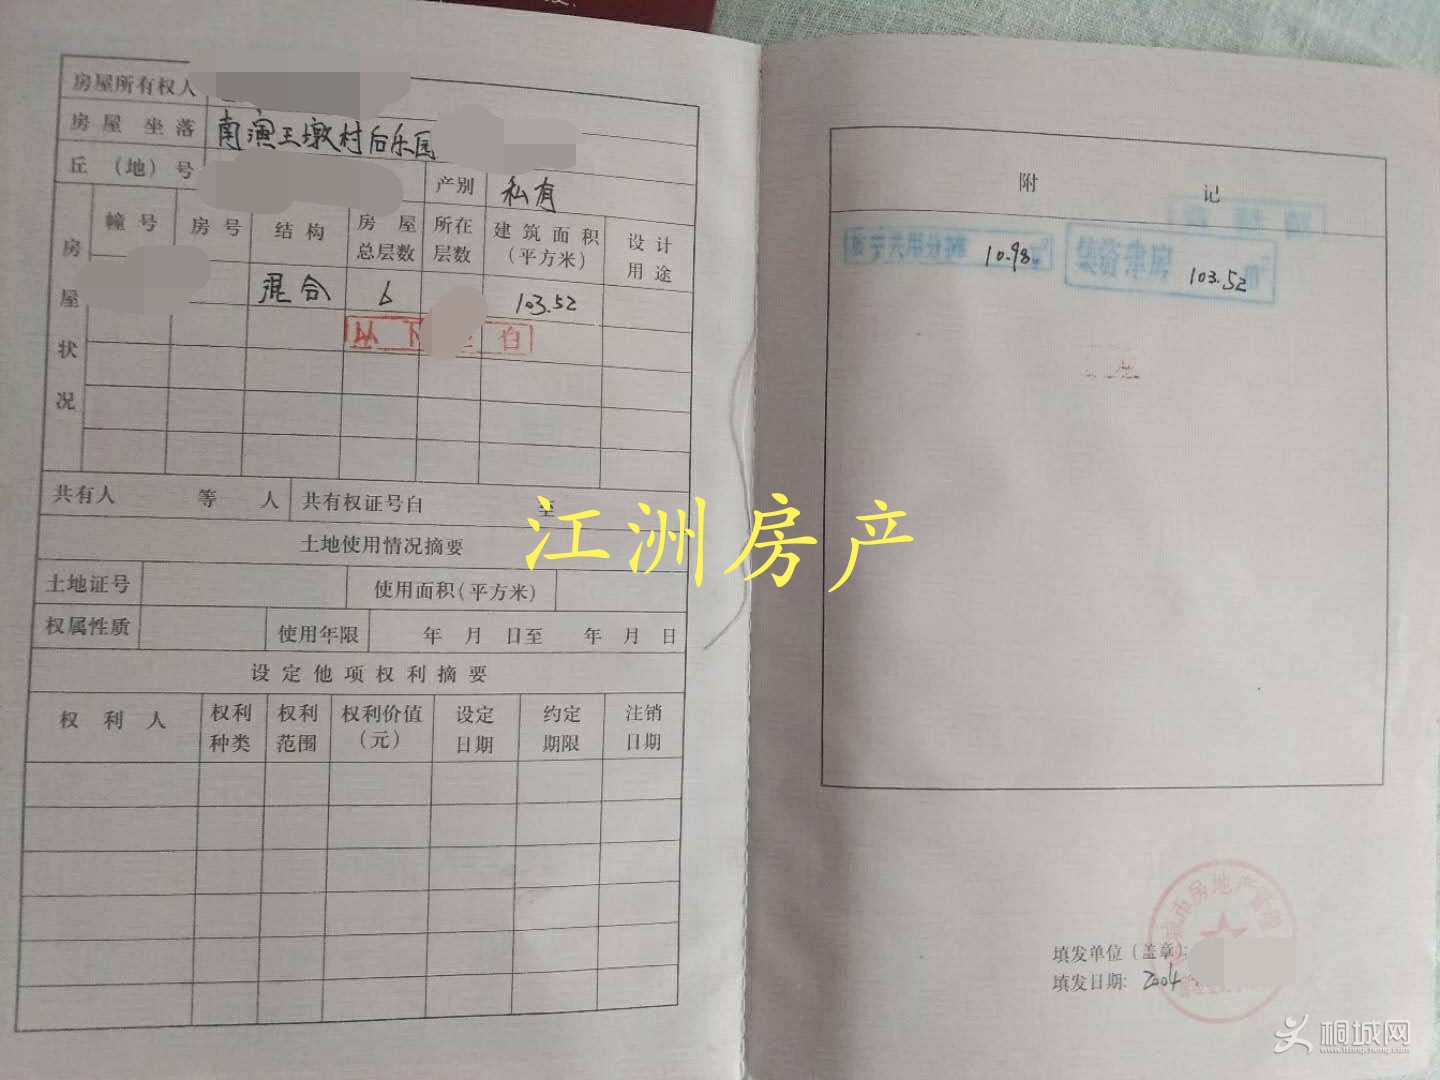 房屋所有权人
房屋坐落 南演王墩村后乐园
丘（地）号 产别 私有
房屋状况 幢号 房号 结构 房屋总层数 所在层数 建筑面积（平方米） 设计用途
混合 6 103.52
以下 白
共有人 等 人 共有权证号自 至
土地使用情况摘要
土地证号 使用面积（平方米）
权属性质 使用年限 年 月 日至 年 月 日
设定他项权利摘要
权利人 权利种类 权利范围 权利价值（元） 设定日期 约定期限 注销日期
附 记
10.98
103.52
填发单位（盖章）:
填发日期: 2004
市房地产管理
江洲房产
桐城网
www.itongcheng.com